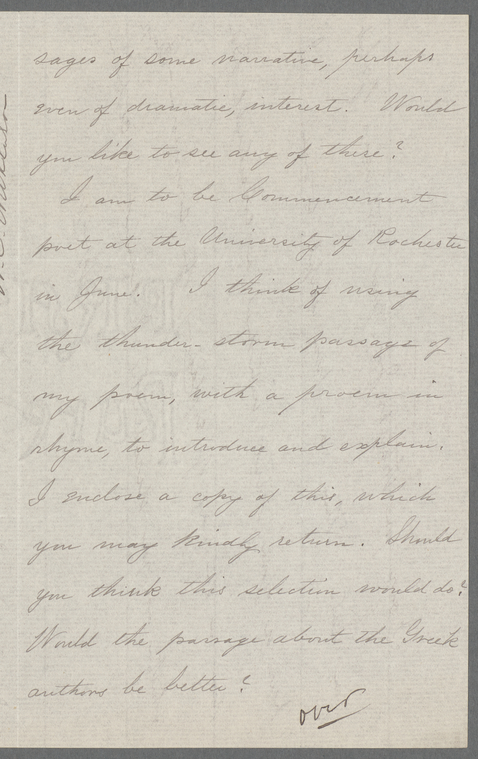 sages of some narrative, perhaps
even of dramatic, interest. Would
you like to see any of these?
I am to be Commencement
poet at the University of Rochester
in June. I think of using
the thunder-storm passage of
my poem, with a proem in
rhyme, to introduce and explain.
I enclose a copy of this, which
you may kindly return. Should
you think this selection would do?
Would the passage about the Greek
authors be better?
over